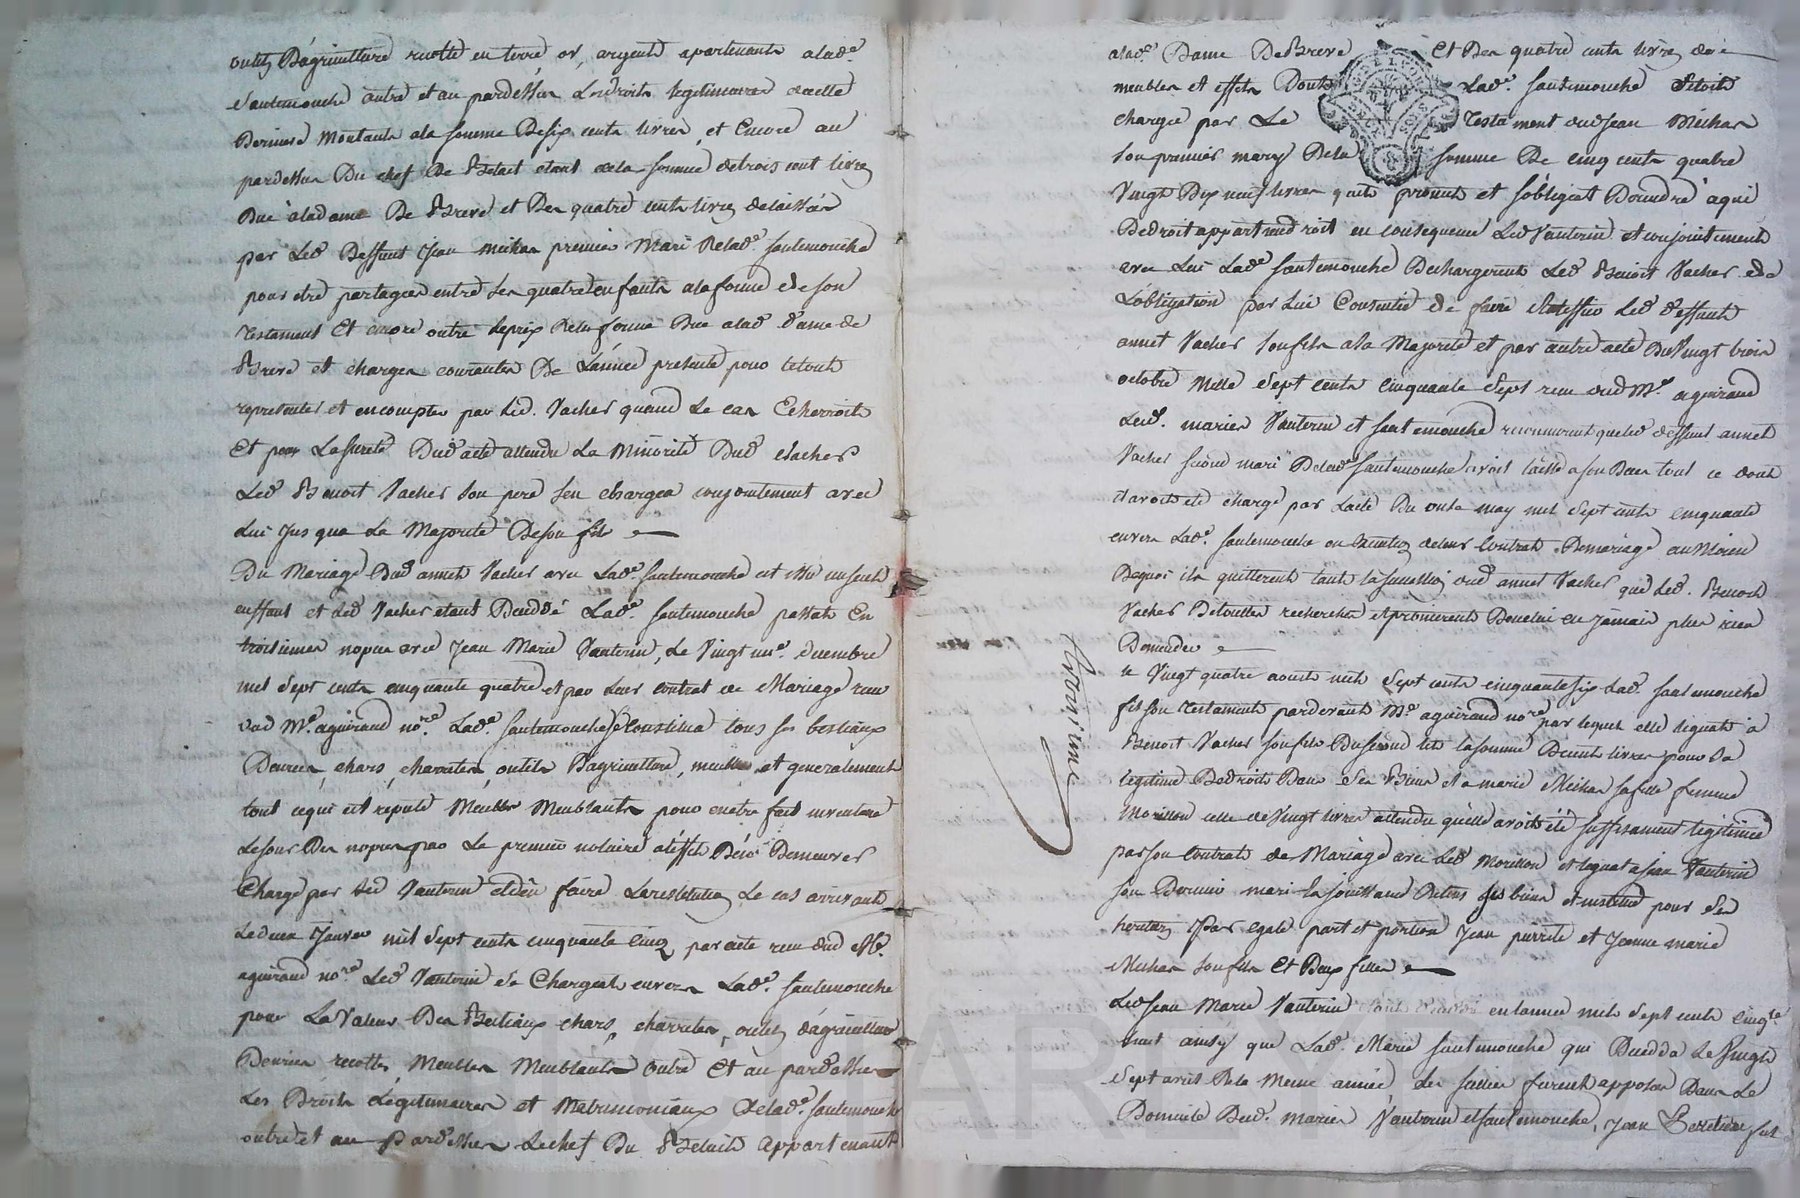 outils d'agriculture recolte en terre or, argents apartenants a lade.
Sautemouche outre et au pardessus Les droits legitimaires d'icelle
Derniere Montants a la somme De six cents livres et Encore au
pardessus Du chef De Belait etant de la somme de trois cent livres
Due a la dame De Brere et Des quatre cents livres delaissés
par Led. Deffunt Jean michas premier Mari De lade. Sautemouche
pour etre partagées entre ses quatre enfants a la forme de son
testament Et encore outre le prix De la ferme Due a lad. dame de
Brere et charges courantes De L'année presente pour le tout
representer et en compter par led. Vacher quand Le cas Echerroit
Et pour La sureté Dud. acte attendu La Minorité Dud. Vacher
Led. Benoit Vacher son pere s'en chargea conjointement avec
Lui Jus qua La Majorité De son fils
Du Mariage Dud. annet Vacher avec Lade. Sautemouche est issu un seul
enffant et led. Vacher etant Decedé Lade. Sautemouche passat En
troisiemes nopces avec Jean Marie Vauterin, Le Vingt un decembre
mil sept cents cinquante quatre et par Leur contrat de Mariage recu
dud Me. aguiraud nore. Lade. Sautemouche se Constitua tous ses bestiaux
Denrées, chars, charretes, outils D'agriculture, meubles et generalement
tout ce qui est reputé Meubles Meublants pour en etre fait inventaire
Le jour Des nopces par Le premier notaire a l'effet De s'en Demeurer
Chargé par led Vauterin et d'en faire La restitution Le cas arrivant
Le deux Janvier mil sept cents cinquante cinq par acte recu dud Me.
aguiraud nore. Led Vauterin se Chargeat envers Lade. Sautemouche
pour La Valeur Des Bestiaux chars, charretes, outils d'agriculture
Denrées recoltes, Meubles Meublants outre Et au pardessus
Les Droits Legitimaires et Matrimoniaux De lade. Sautemouche
outre et au Pardessus Le chef Du Belait appartenant
a lade. Dame De Brere Et Des quatre cents livres de
meubles et effets Dont Lade. Sautemouche Etoit
chargée par Le Testament dud Jean Michas
son premier mary De la somme De cinq cents quatre
Vingt Dix neuf livres qu'il promit et s'obligeat De rendre a qui
De droit appartiendroit en consequence Led Vauterin et conjointement
avec Lui Lade. Sautemouche Dechargerent Led Benoit Vacher de
L'obligation par Lui Consentie de faire Led deffunt
annet Vacher son fils a la Majorité et par autre acte Du Vingt trois
octobre Mille sept cents cinquante sept recu dud Me. aguiraud
Led. mariés Vauterin et Sautemouche reconnurent que led deffunt annet
Vacher second mari De lade Sautemouche avoit laissé a son Deces tout ce dont
il avoit eté chargé par L'acte Du onze may mil sept cents cinquante
envers Lade. Sautemouche en Execution de leur Contrat De mariage au Moien
De quoi ils quitterent tant la succession dud annet Vacher que Led. Benoit
Vacher De toutes recherches et promirent De ne lui en Jamais plus rien
Demander
Le Vingt quatre aoust mil sept cents cinquante six Lade. Sautemouche
fit son testament par devant Me. aguiraud nore. par lequel elle leguat a
Benoit Vacher son fils Du second lit la somme De cent livres pour sa
legitime De droits Dans ses Biens et a marie Michas sa fille femme
Morillon celle de Vingt livres attendu qu'elle avoit eté suffisament legitimée
par son Contrat de Mariage avec Led Morillon et leguat a Jean Vauterin
son Dernier mari la Jouissance De tous ses biens et institué pour ses
heritiers Par egale part et portion Jean pierrete et Jeanne marie
Michas son fils Et Deux filles
Led Jean Marie Vauterin en l'année mil sept cents cinqte.
huit ainsy que Lade. Marie Sautemouche qui Deceda Le Vingt
sept avril De la Meme année Les scellés furent apposés Dans Le
Domicile Desd. mariés Vauterin et Sautemouche, Jean fut